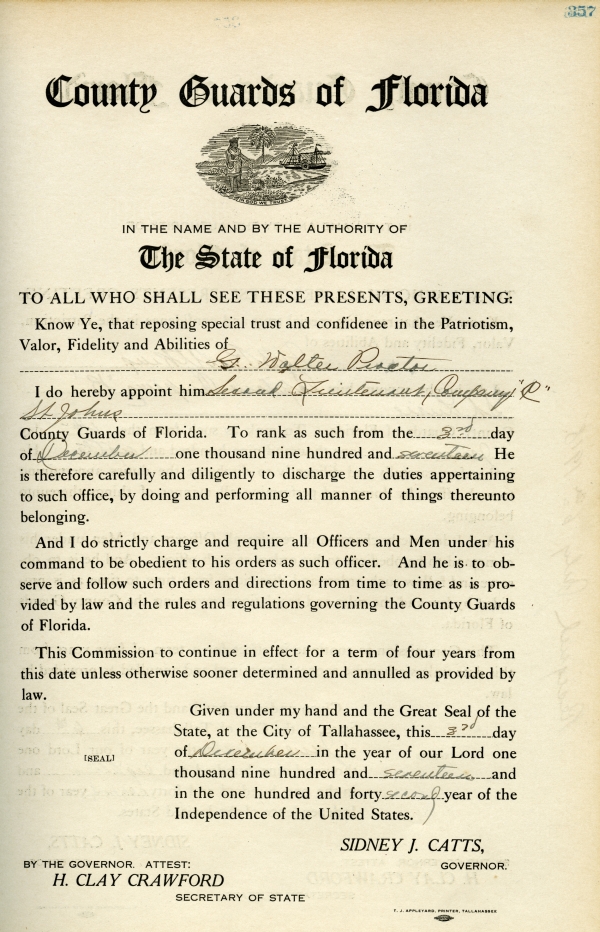 357
County Guards of Florida
IN GOD WE TRUST
IN THE NAME AND BY THE AUTHORITY OF
The State of Florida
TO ALL WHO SHALL SEE THESE PRESENTS, GREETING:
Know Ye, that reposing special trust and confidenee in the Patriotism,
Valor, Fidelity and Abilities of
G. Walter Proctor
I do hereby appoint him Second Lieutenant, Company
St. Johns
County Guards of Florida. To rank as such from the 3rd day
of December one thousand nine hundred and seventeen He
is therefore carefully and diligently to discharge the duties appertaining
to such office, by doing and performing all manner of things thereunto
belonging.
And I do strictly charge and require all Officers and Men under his
command to be obedient to his orders as such officer. And he is to ob-
serve and follow such orders and directions from time to time as is pro-
vided by law and the rules and regulations governing the County Guards
of Florida.
This Commission to continue in effect for a term of four years from
this date unless otherwise sooner determined and annulled as provided by
law.
Given under my hand and the Great Seal of the
State, at the City of Tallahassee, this 3rd day
[SEAL] of December in the year of our Lord one
thousand nine hundred and seventeen and
in the one hundred and forty second year of the
Independence of the United States.
SIDNEY J. CATTS,
GOVERNOR.
BY THE GOVERNOR. ATTEST:
H. CLAY CRAWFORD
SECRETARY OF STATE
T. J. APPLEYARD, PRINTER, TALLAHASSEE